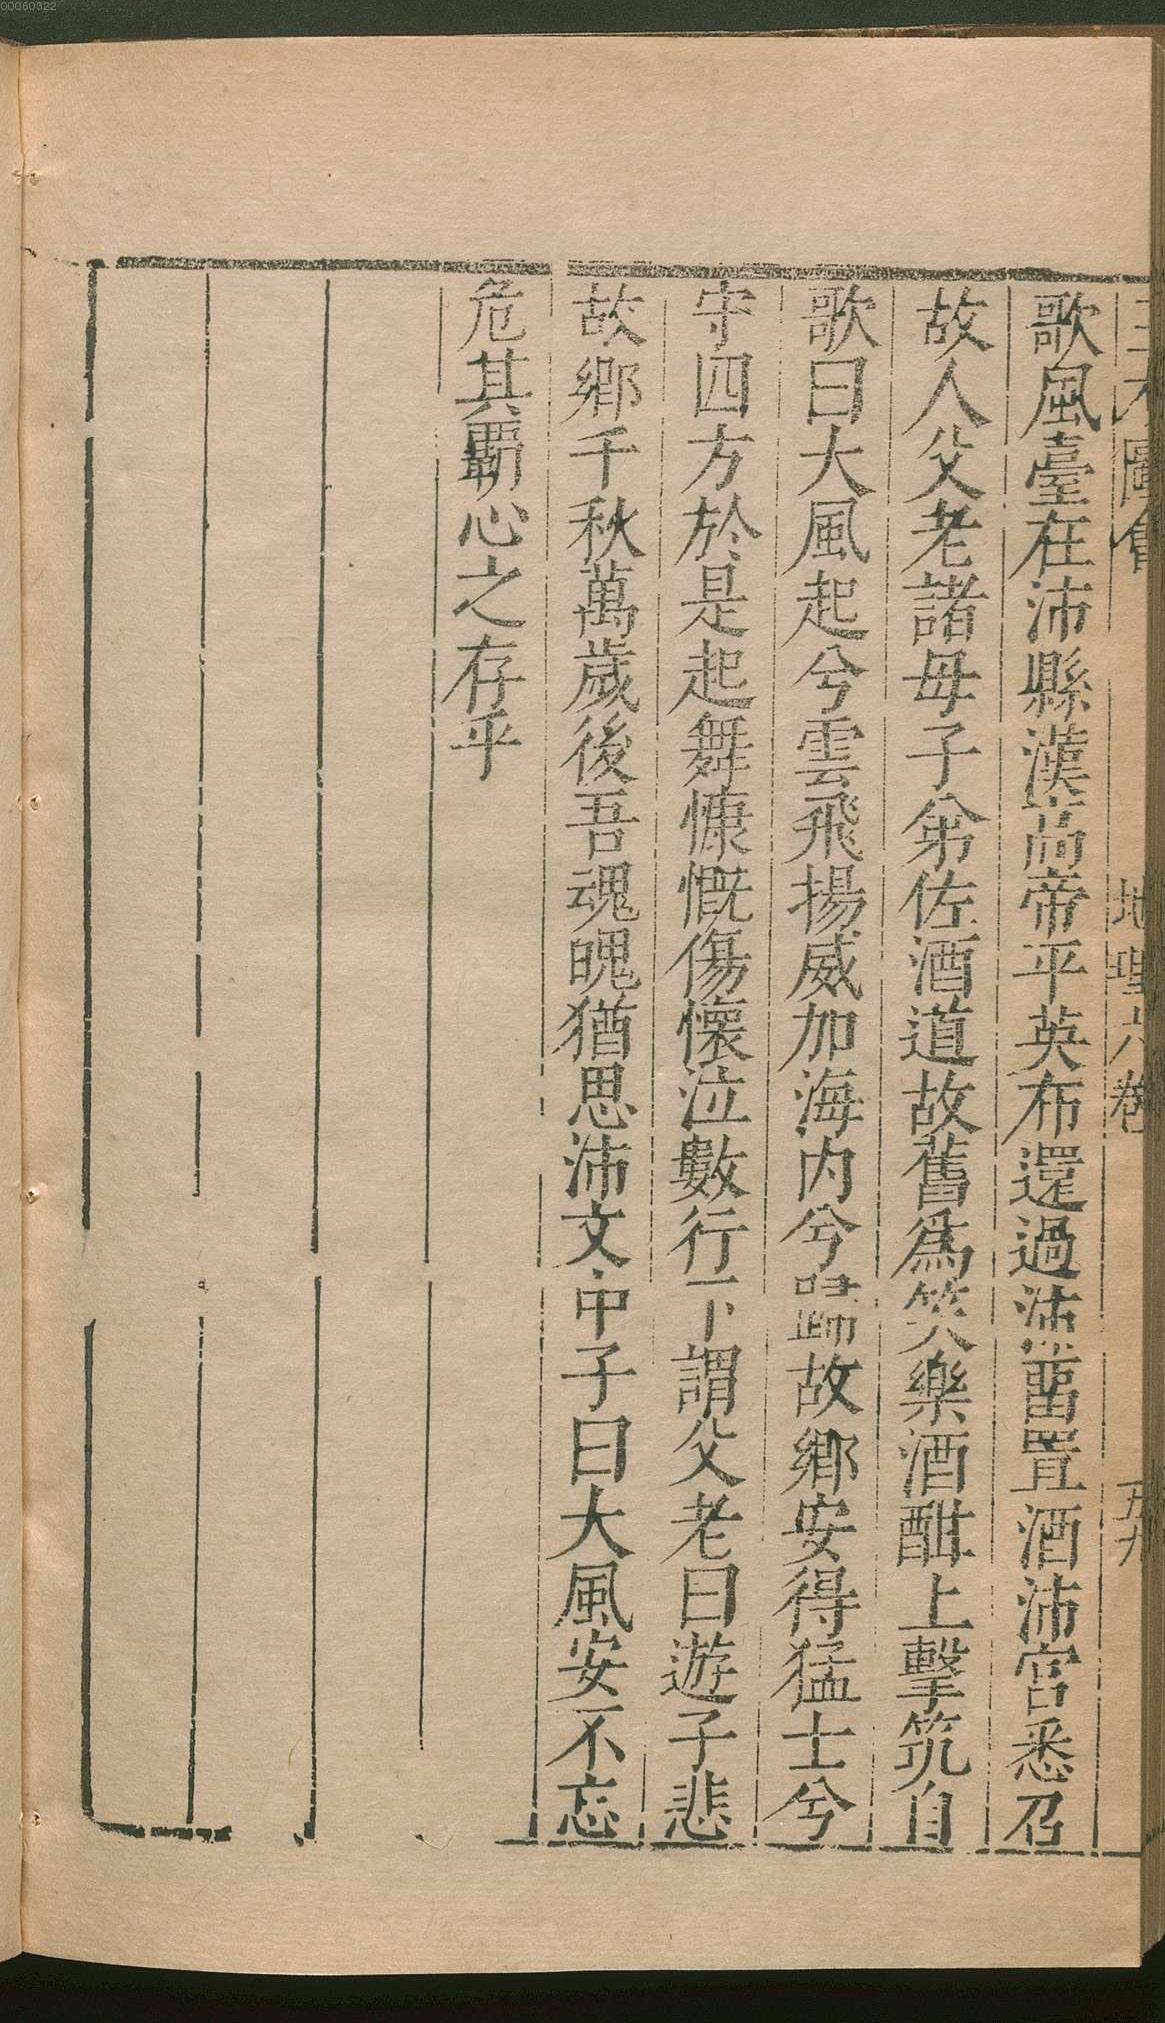 00060322
三才圖會 地理六卷 五九
歌風臺在沛縣漢高帝平英布還過沛畱置酒沛宮悉召
故人父老諸母子弟佐酒道故舊爲笑樂酒酣上擊筑自
歌曰大風起兮雲飛揚威加海内兮歸故鄉安得猛士兮
守四方於是起舞慷慨傷懷泣數行下謂父老曰遊子悲
故鄉千秋萬歲後吾魂魄猶思沛文中子曰大風安不忘
危其覇心之存乎